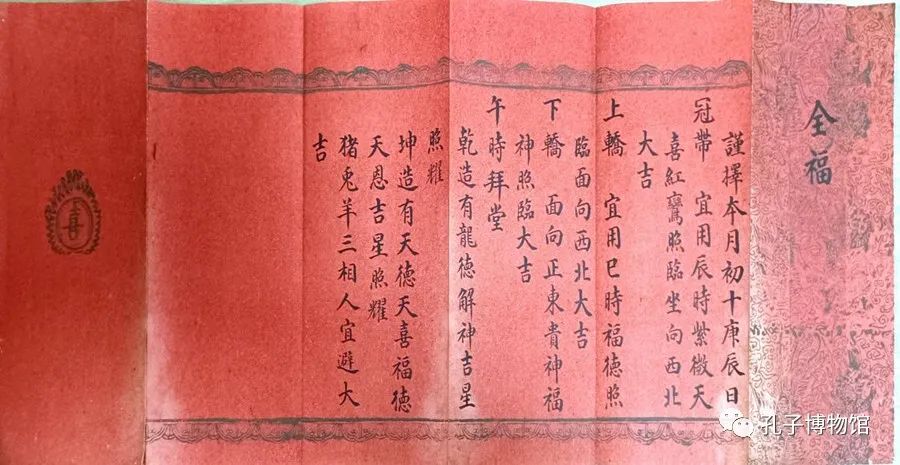 全福
謹擇本月初十庚辰日
冠帶　宜用辰時紫微天
喜紅鸞照臨坐向西北
大吉
上轎　宜用巳時福德照
臨面向西北大吉
下轎　面向正東貴神福
神照臨大吉
午時拜堂
乾造有龍德解神吉星
照耀
坤造有天德天喜福德
天恩吉星照耀
猪兎羊三相人宜避大
吉
喜
孔子博物馆